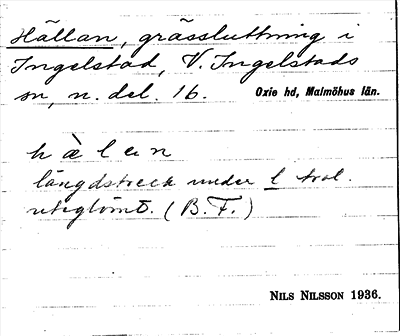 Hällan, grässluttning i
Ingelstad, V. Ingelstads
sn, n. del. 16. Oxie hd, Malmöhus län.
hälan
längdstreck under l trol.
uteglömt. (B.F.)
NILS NILSSON 1936.